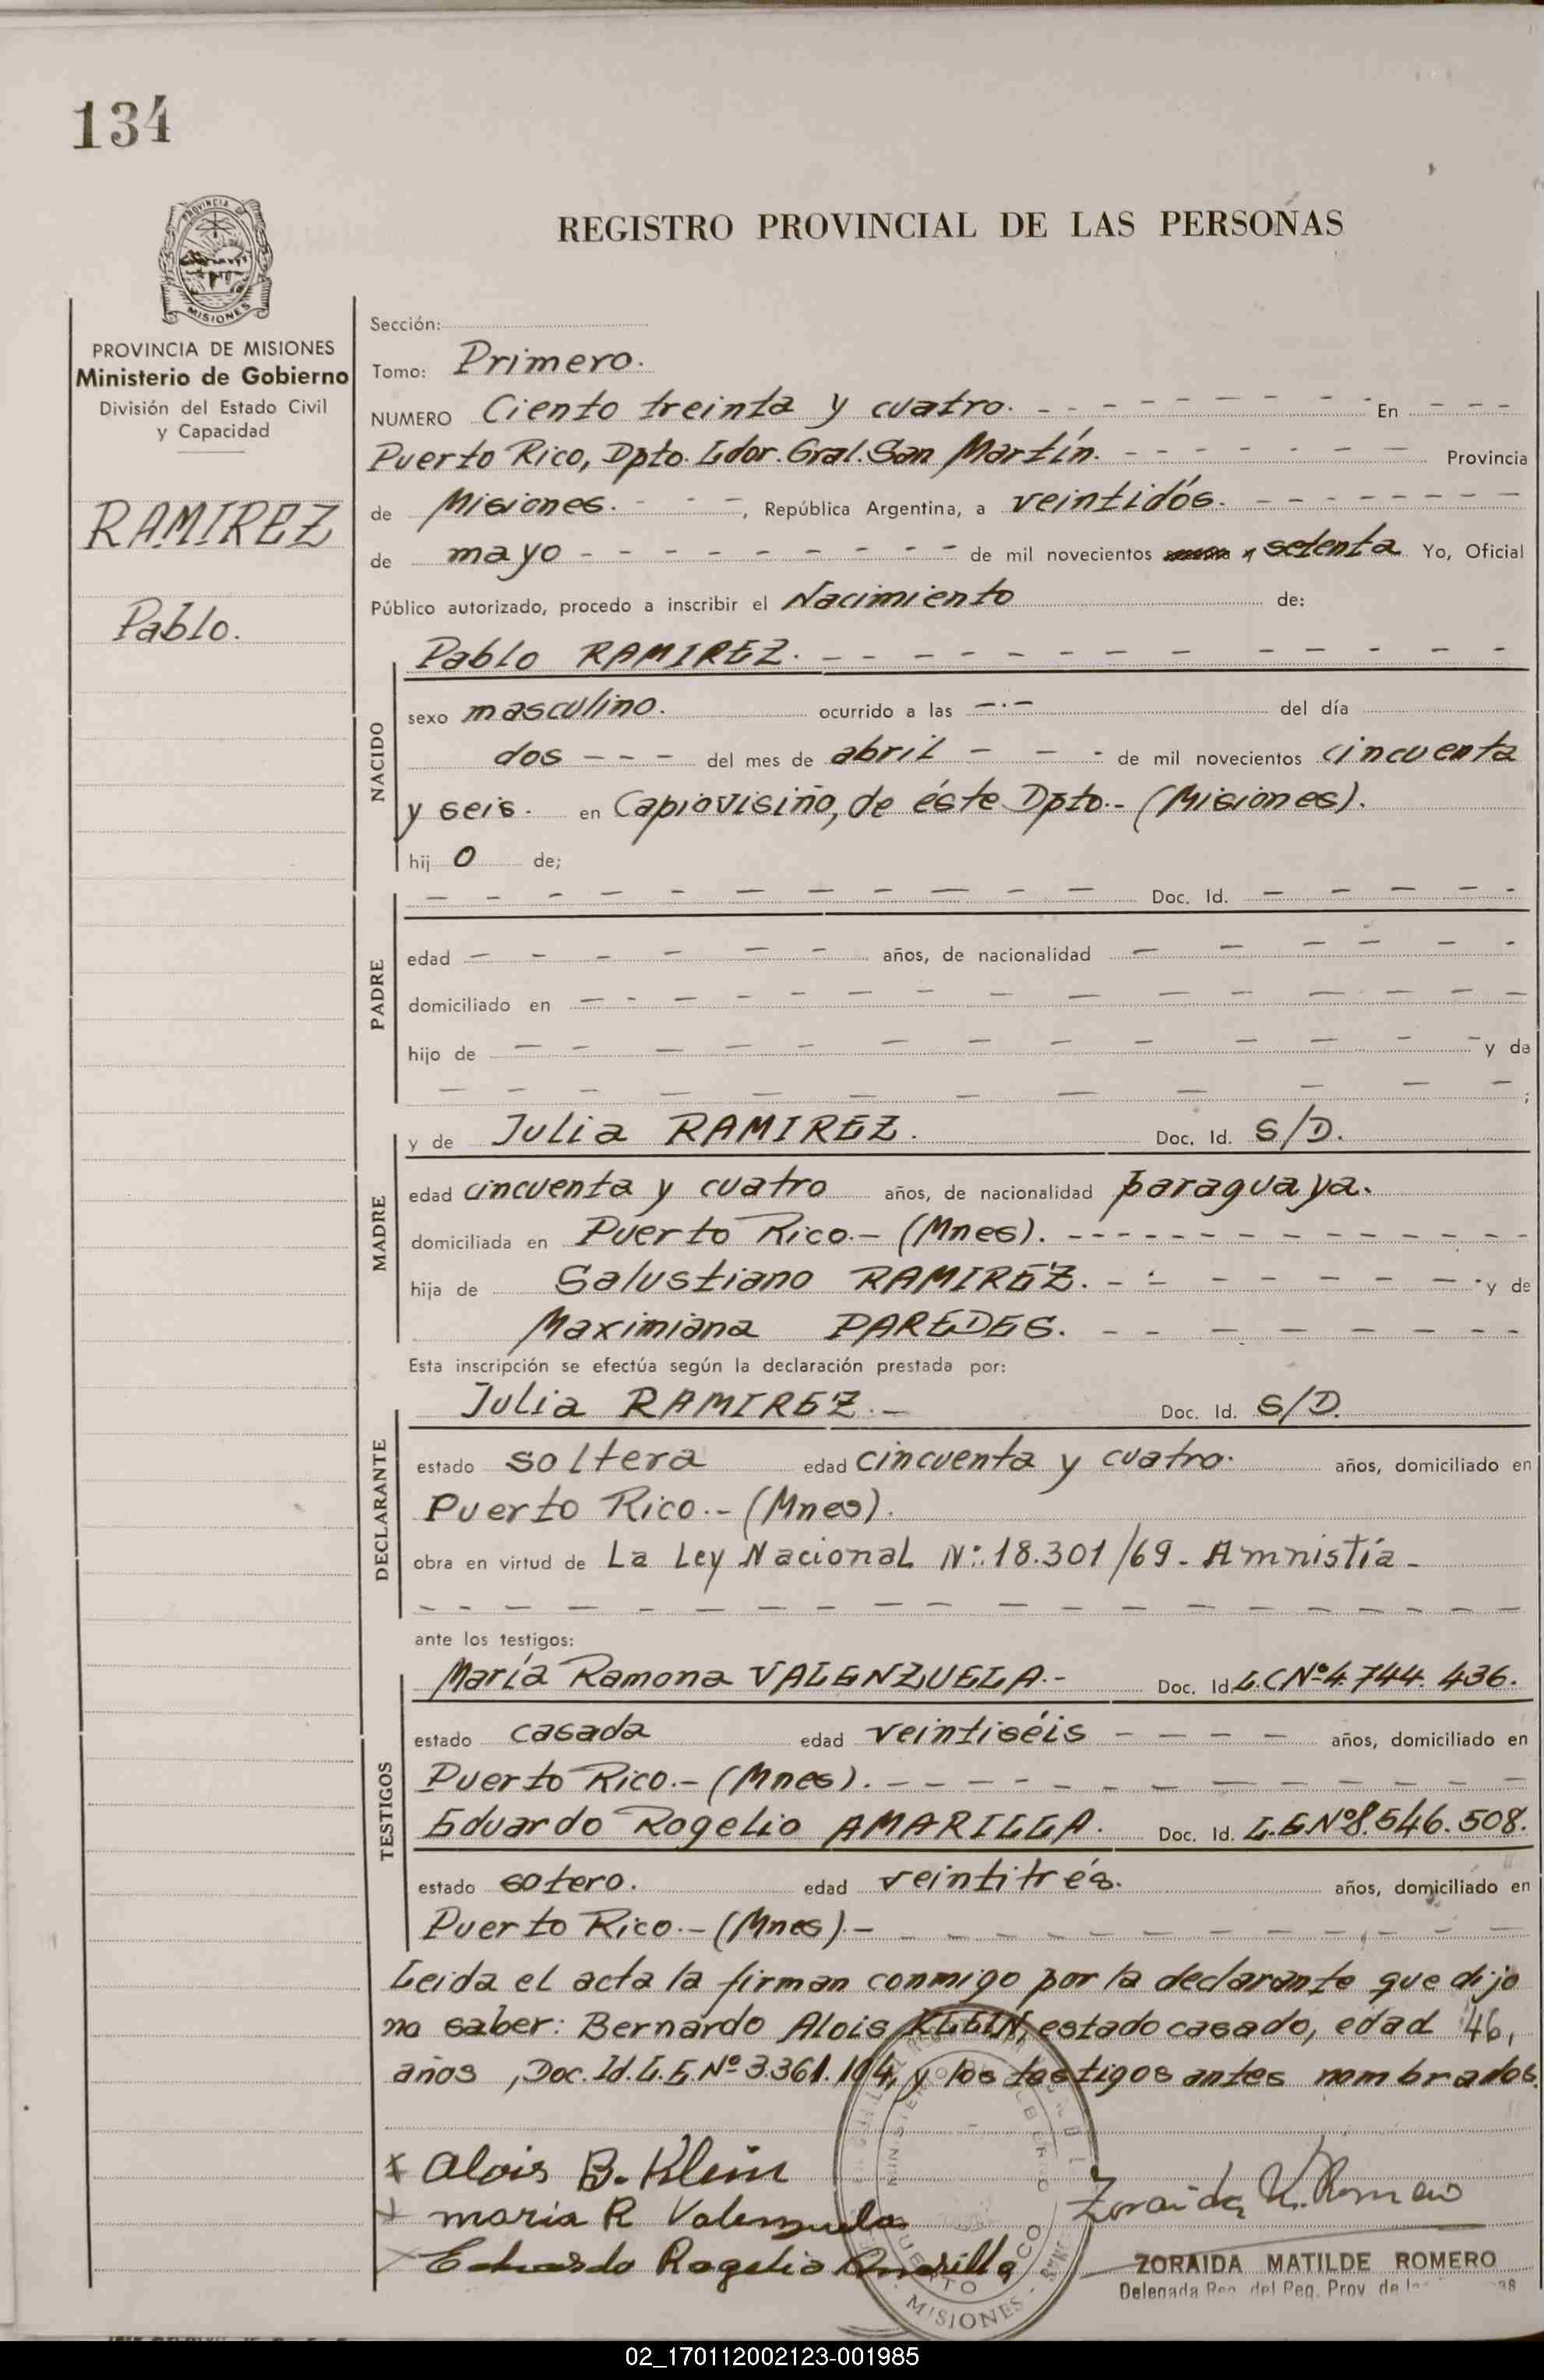 134
PROVINCIA DE MISIONES
REGISTRO PROVINCIAL DE LAS PERSONAS
PROVINCIA DE MISIONES
Ministerio de Gobierno
División del Estado Civil
y Capacidad
RAMIREZ
Pablo.
Sección:
Tomo: Primero.
NUMERO Ciento treinta y cuatro. - - - - - - - - - En - - -
Puerto Rico, Dpto. Ldor. Gral. San Martín. - - - - - - - Provincia
de Misiones. - - -, República Argentina, a veintidós. - - - - - - - -
de mayo - - - - - - - - - de mil novecientos y setenta Yo, Oficial
Público autorizado, procedo a inscribir el Nacimiento de:
Pablo RAMIREZ. - - - - - - - - - - - - - - -
NACIDO
sexo masculino. ocurrido a las -.- del día
dos - - - del mes de abril - - - de mil novecientos cincuenta
y seis. en Capiovisiño, de éste Dpto.- (Misiones).
hij o de;
PADRE
- - - - - - - - - - - Doc. Id. - - - - -
edad - - - - - - años, de nacionalidad - - - - - -
domiciliado en - - - - - - - - - - - - - -
hijo de - - - - - - - - - - - - - y de
- - - - - - - - - - - - - ;
MADRE
y de Julia RAMIREZ. Doc. Id. S/D.
edad cincuenta y cuatro años, de nacionalidad paraguaya.
domiciliada en Puerto Rico.- (Mnes). - - - - - - - - - - - - -
hija de Salustiano RAMIREZ. - - - - - - - - y de
Maximiana PAREDES. - - - - - - - - -
Esta inscripción se efectúa según la declaración prestada por:
DECLARANTE
Julia RAMIREZ.- Doc. Id. S/D.
estado soltera edad cincuenta y cuatro. años, domiciliado en
Puerto Rico.- (Mnes).
obra en virtud de La Ley Nacional Nº: 18.301/69- Amnistía-
- - - - - - - - - - - - - - - - - - -
ante los testigos:
TESTIGOS
María Ramona VALENZUELA.- Doc. Id. L.C Nº 4.744.436.
estado casada edad veintiséis - - - - años, domiciliado en
Puerto Rico.- (Mnes). - - - - - - - - - - - - -
Eduardo Rogelio AMARILLA. Doc. Id. L.E Nº 8.546.508.
estado sotero. edad veintitrés. años, domiciliado en
Puerto Rico.- (Mnes).- - - - - - - - - - - -
Leida el acta la firman conmigo por la declarante que dijo
no saber: Bernardo Alois KLEIN, estado casado, edad 46,
años, Doc. Id. L.E. Nº 3.361.194, y los testigos antes nombrados.
x Alois B. Klein
x maria R Valenzuela
x Eduardo Rogelio Amarilla
Zoraida M. Romero
ZORAIDA MATILDE ROMERO
Delegada Reg. del Reg. Prov. de las
PUERTO RICO
MISIONES
02_170112002123-001985